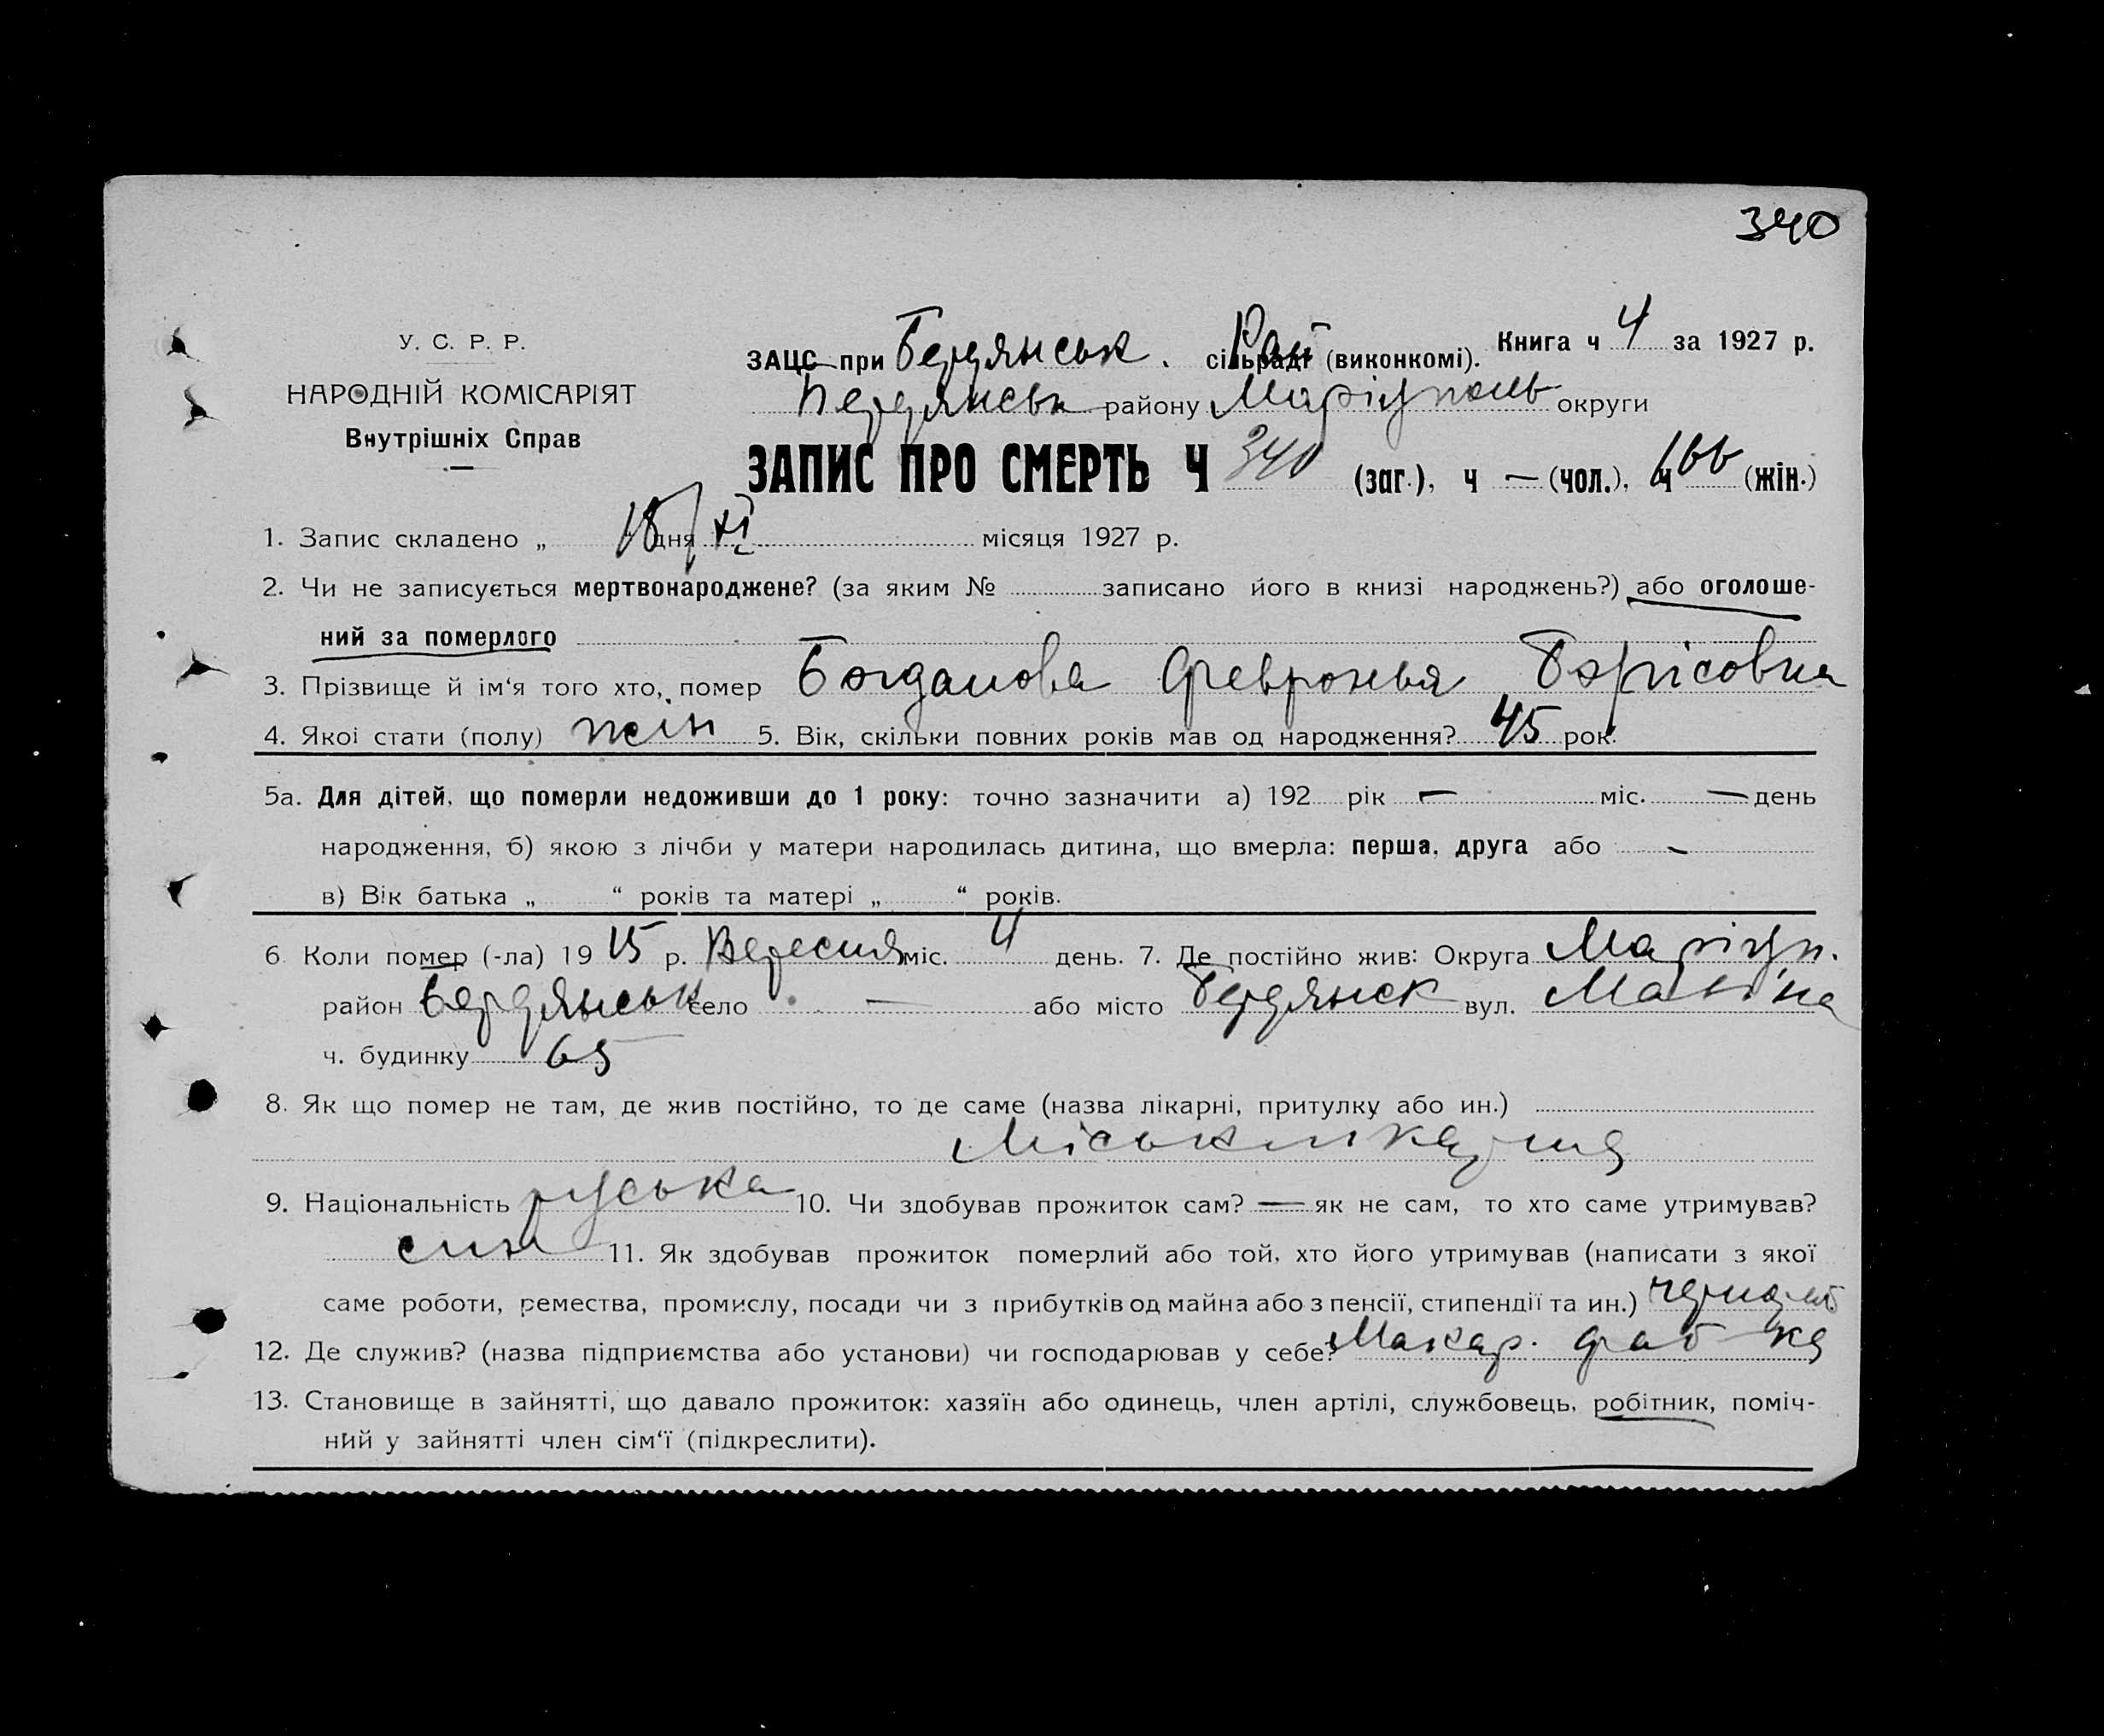 340
У. С. Р. Р.
НАРОДНІЙ КОМІСАРІЯТ
Внутрішніх Справ
ЗАЦС при Бердянськ. Рай сільраді (виконкомі). Книга ч 4 за 1927 р.
Бердянськ району Маріуполь округи
ЗАПИС ПРО СМЕРТЬ Ч 340 (заг.), ч — (чол.), ч 166 (жін.)
1. Запис складено „ 18/XI дня місяця 1927 р.
2. Чи не записується мертвонароджене? (за яким № записано його в книзі народжень?) або оголоше-
ний за померлого
3. Прізвище й ім‘я того хто, помер Богданова Февронья Борісовна
4. Якоі стати (полу) жін 5. Вік, скільки повних років мав од народження? 45 рок.
5а. Для дітей, що померли недоживши до 1 року: точно зазначити а) 192 рік — міс. — день
народження, б) якою з лічби у матери народилась дитина, що вмерла: перша, друга або -
в) Вік батька „ “ років та матері „ “ років.
6. Коли помер (-ла) 19 15 р. Вересня міс. 4 день. 7. Де постійно жив: Округа Маріуп.
район Бердянськ село — або місто Бердянск вул.
ч. будинку 65
8. Як що помер не там, де жив постійно, то де саме (назва лікарні, притулку або ин.)
9. Національність руська 10. Чи здобував прожиток сам? — як не сам, то хто саме утримував?
син 11. Як здобував прожиток померлий або той, хто його утримував (написати з якої
саме роботи, ремества, промислу, посади чи з прибутків од майна або з пенсії, стипендії та ин.)
12. Де служив? (назва підприємства або установи) чи господарював у себе? Макар. фаб-ка
13. Становище в зайнятті, що давало прожиток: хазяїн або одинець, член артілі, службовець, робітник, поміч-
ний у зайнятті член сім‘ї (підкреслити).